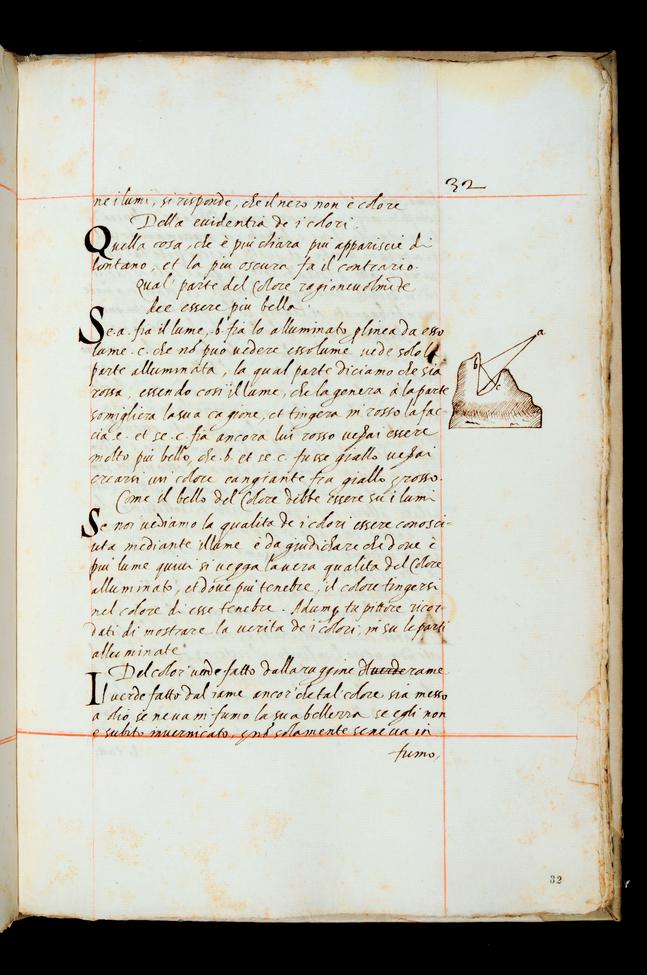 32
ne i lumi, si risponde, che il nero non è colore
Della evidentia de i colori.
Quella cosa, che è più chiara più apparisce di
lontano, et la più oscura fa il contrario.
Qual' parte del Colore ragionevolmẽte
dee essere piu bella
Se .a. fia il lume, .b. fia lo alluminato p linea da esso
lume .c. che nõ puo vedere esso lume vede solo la
parte alluminata, la qual parte diciamo che sia
rossa, essendo cosi il lume, che la genera à la parte
somigliera la sua cagione, et tingera in rosso la fac-
cia .c. et se .c. fia ancora lui rosso vedrai essere
molto piu bello, che .b. et se .c. fusse giallo vedrai
crearsi un colore cangiante fra giallo e rosso.
Come il bello del Colore debbe essere su i lumi
Se noi vediamo la qualita de i colori essere conosci-
uta mediante il lume è da giudichare che dove è
piu lume quivi si vegga la vera qualita del Colore
alluminato, et dove piu tenebre, il colore tingersi
nel colore di esse tenebre. Adunq tu pittore ricor-
dati di mostrare la verita de i colori, in su le parti
alluminate
Del color verde fatto dalla ruggine di rame
Il verde fatto dal rame ancor che tal colore sia messo
a olio se ne va in fumo la sua bellezza se egli non
e subito invernicato, et nõ solamente se ne va in
fumo,
a
b
c
32